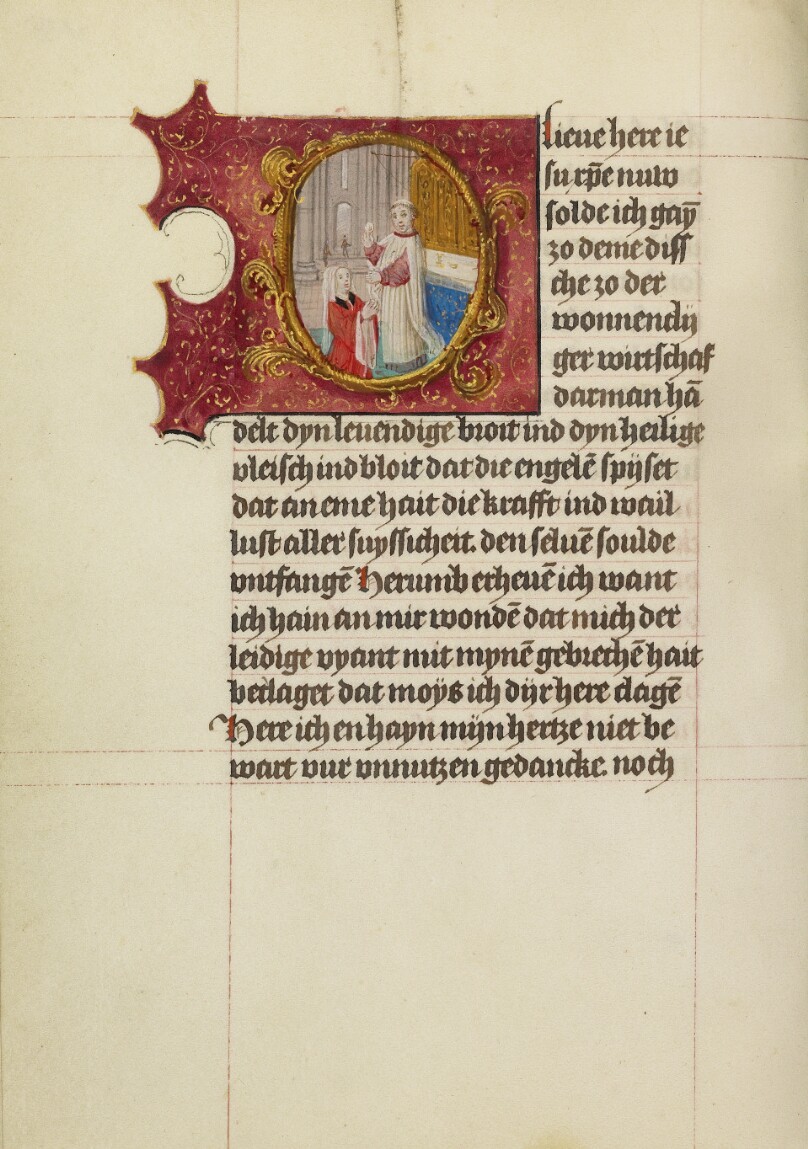 O lieue here ie
su xp̄e nuw
solde ich gaȳ
zo deme diss
che zo der
wonnendij
ger wirtschaf
dar man hā
delt dyn leuendige broit ind dyn heilige
vleisch ind bloit dat die engelē spijset
dat an eme hait die krafft ind wail
lust aller suyssicheit. den seluē soulde
vntfangē Herumb erheuē ich want
ich hain an mir wondē dat mich der
leidige vyant mit mynē gebrechē hait
beclaget dat moÿs ich dijr here clagē
Here ich en hayn mijn hertze niet be
wart vur vnnutzen gedancke. noch